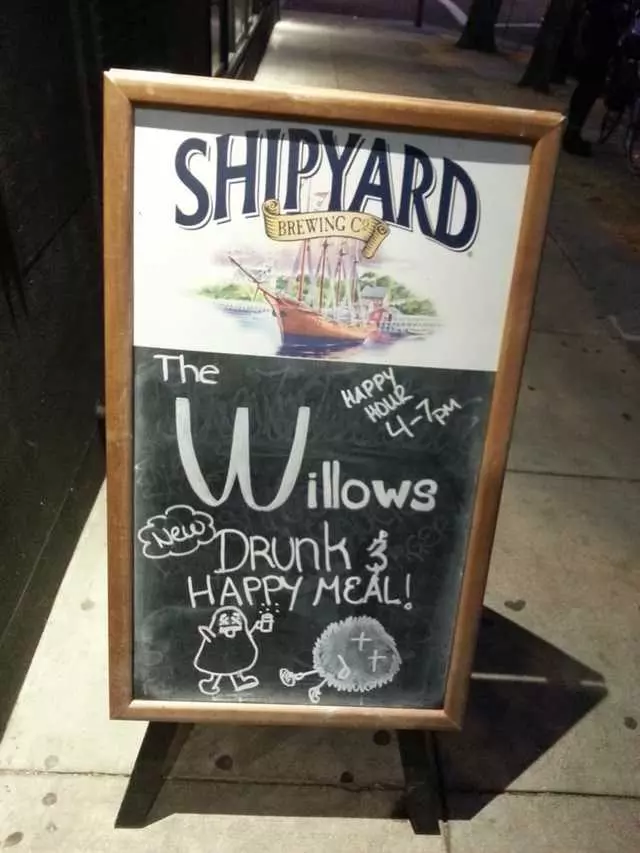 SHIPYARD
BREWING Co
The
HAPPY
HOUR
4-7pm
Willows
New
DRunk &
HAPPY MEAL!